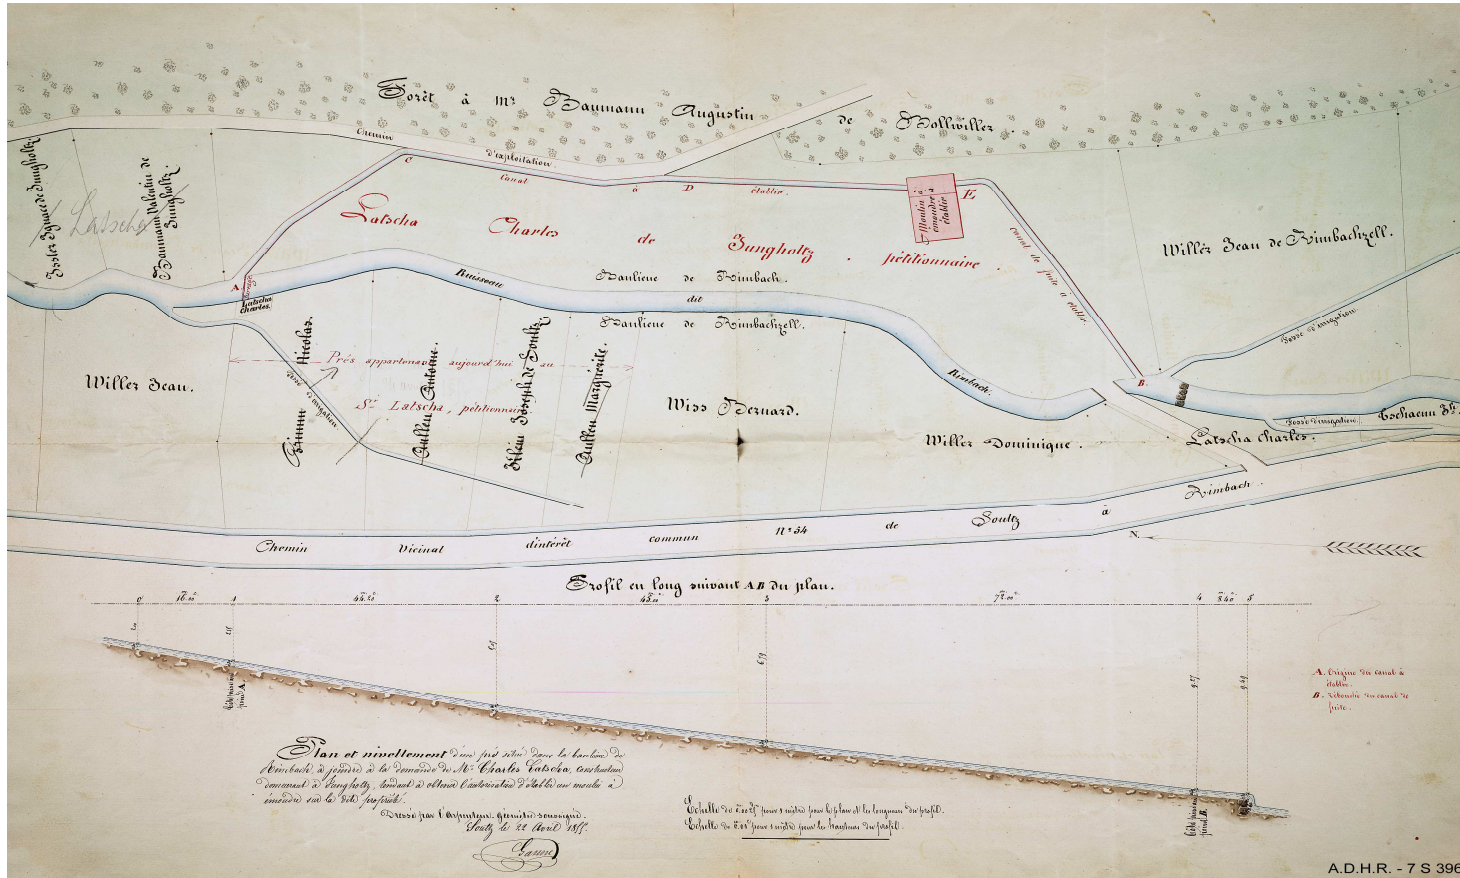 Forêt à Mr Baumann Augustin de Bollwiller.
Chemin d'exploitation.
Canal à établir.
C
D
E
Moulin à émoudre à établir
Issler Ignace de Jungholtz
Latscha
Baumann Valentin de Jungholtz.
Latscha Charles de Jungholtz. pétitionnaire.
canal de fuite à établir.
Willer Jean de Rimbachzell.
A.
barrage
Latscha Charles.
Ruisseau dit Rimbach.
Banlieue de Rimbach.
Banlieue de Rimbachzell.
Fossé d'irrigation.
B.
Willer Jean.
Nicolas.
fossé d'irrigation.
Prés appartenant aujourd'hui au
Sr Latscha, pétitionnaire
Antoine.
Joseph de Soultz.
Marguerite.
Wiss Bernard.
Willer Dominique.
Fossé d'irrigation.
Latscha Charles.
Chemin Vicinal d'intérêt commun No 54 de Soultz à Rimbach.
N.
Profil en long suivant AB du plan.
0 16.00 1 44.20 2 45.00 3 72.00 4 8.40 5
9.27
point A.
point B.
A. Origine du canal à
établir.
B. Débouché du canal de
fuite.
Plan et nivellement d'un pré situé dans la banlieue de
Rimbach, à joindre à la demande de Mr Charles Latscha, constructeur
demeurant à Jungholtz, tendant à obtenir l'autorisation d'établir un moulin à
émoudre sur la dite propriété.
Dressé par l'Arpenteur Géomètre soussigné.
Soultz le 22 Avril 185
Echelle de pour 1 mètre pour le plan et les longueurs du profil.
Echelle de pour 1 mètre pour les hauteurs du profil.
A.D.H.R. - 7 S 396